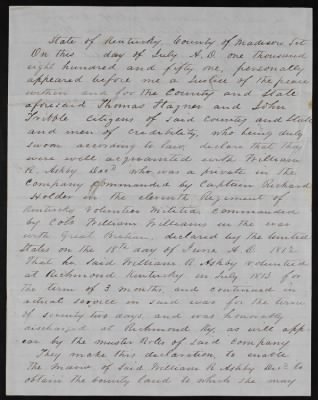 State of Kentucky County of Madison Sct
On this day of July A.D. one thousand
eight hundred and fifty one, personally
appeared before me a Justice of the peace
within and for the County and State
aforesaid Thomas and John
Tribble Citizens of said county and State
and men of credibility, who being duly
sworn according to law, declare that they
were well acquainted with William
R. Ashby Decd who was a private in the
Company commanded by Captain Richard
Holder in the eleventh Regiment of
Kentucky Volunteer Militia, commanded
by Colo William Williams in the war
with Great Britain, declared by the United
States on the 18th day of June A.D. 1812.
That he said William R Ashby volunteered
at Richmond Kentucky in July 1813 for
the term of 3 months, and continued in
actual service in said war for the term
of seventy two days, and was honorably
discharged at Richmond Ky, as will app
ear by the muster Roles of said company
They make this declaration, to enable
the of said William R Ashby Decd to
obtain the bounty land to which she may